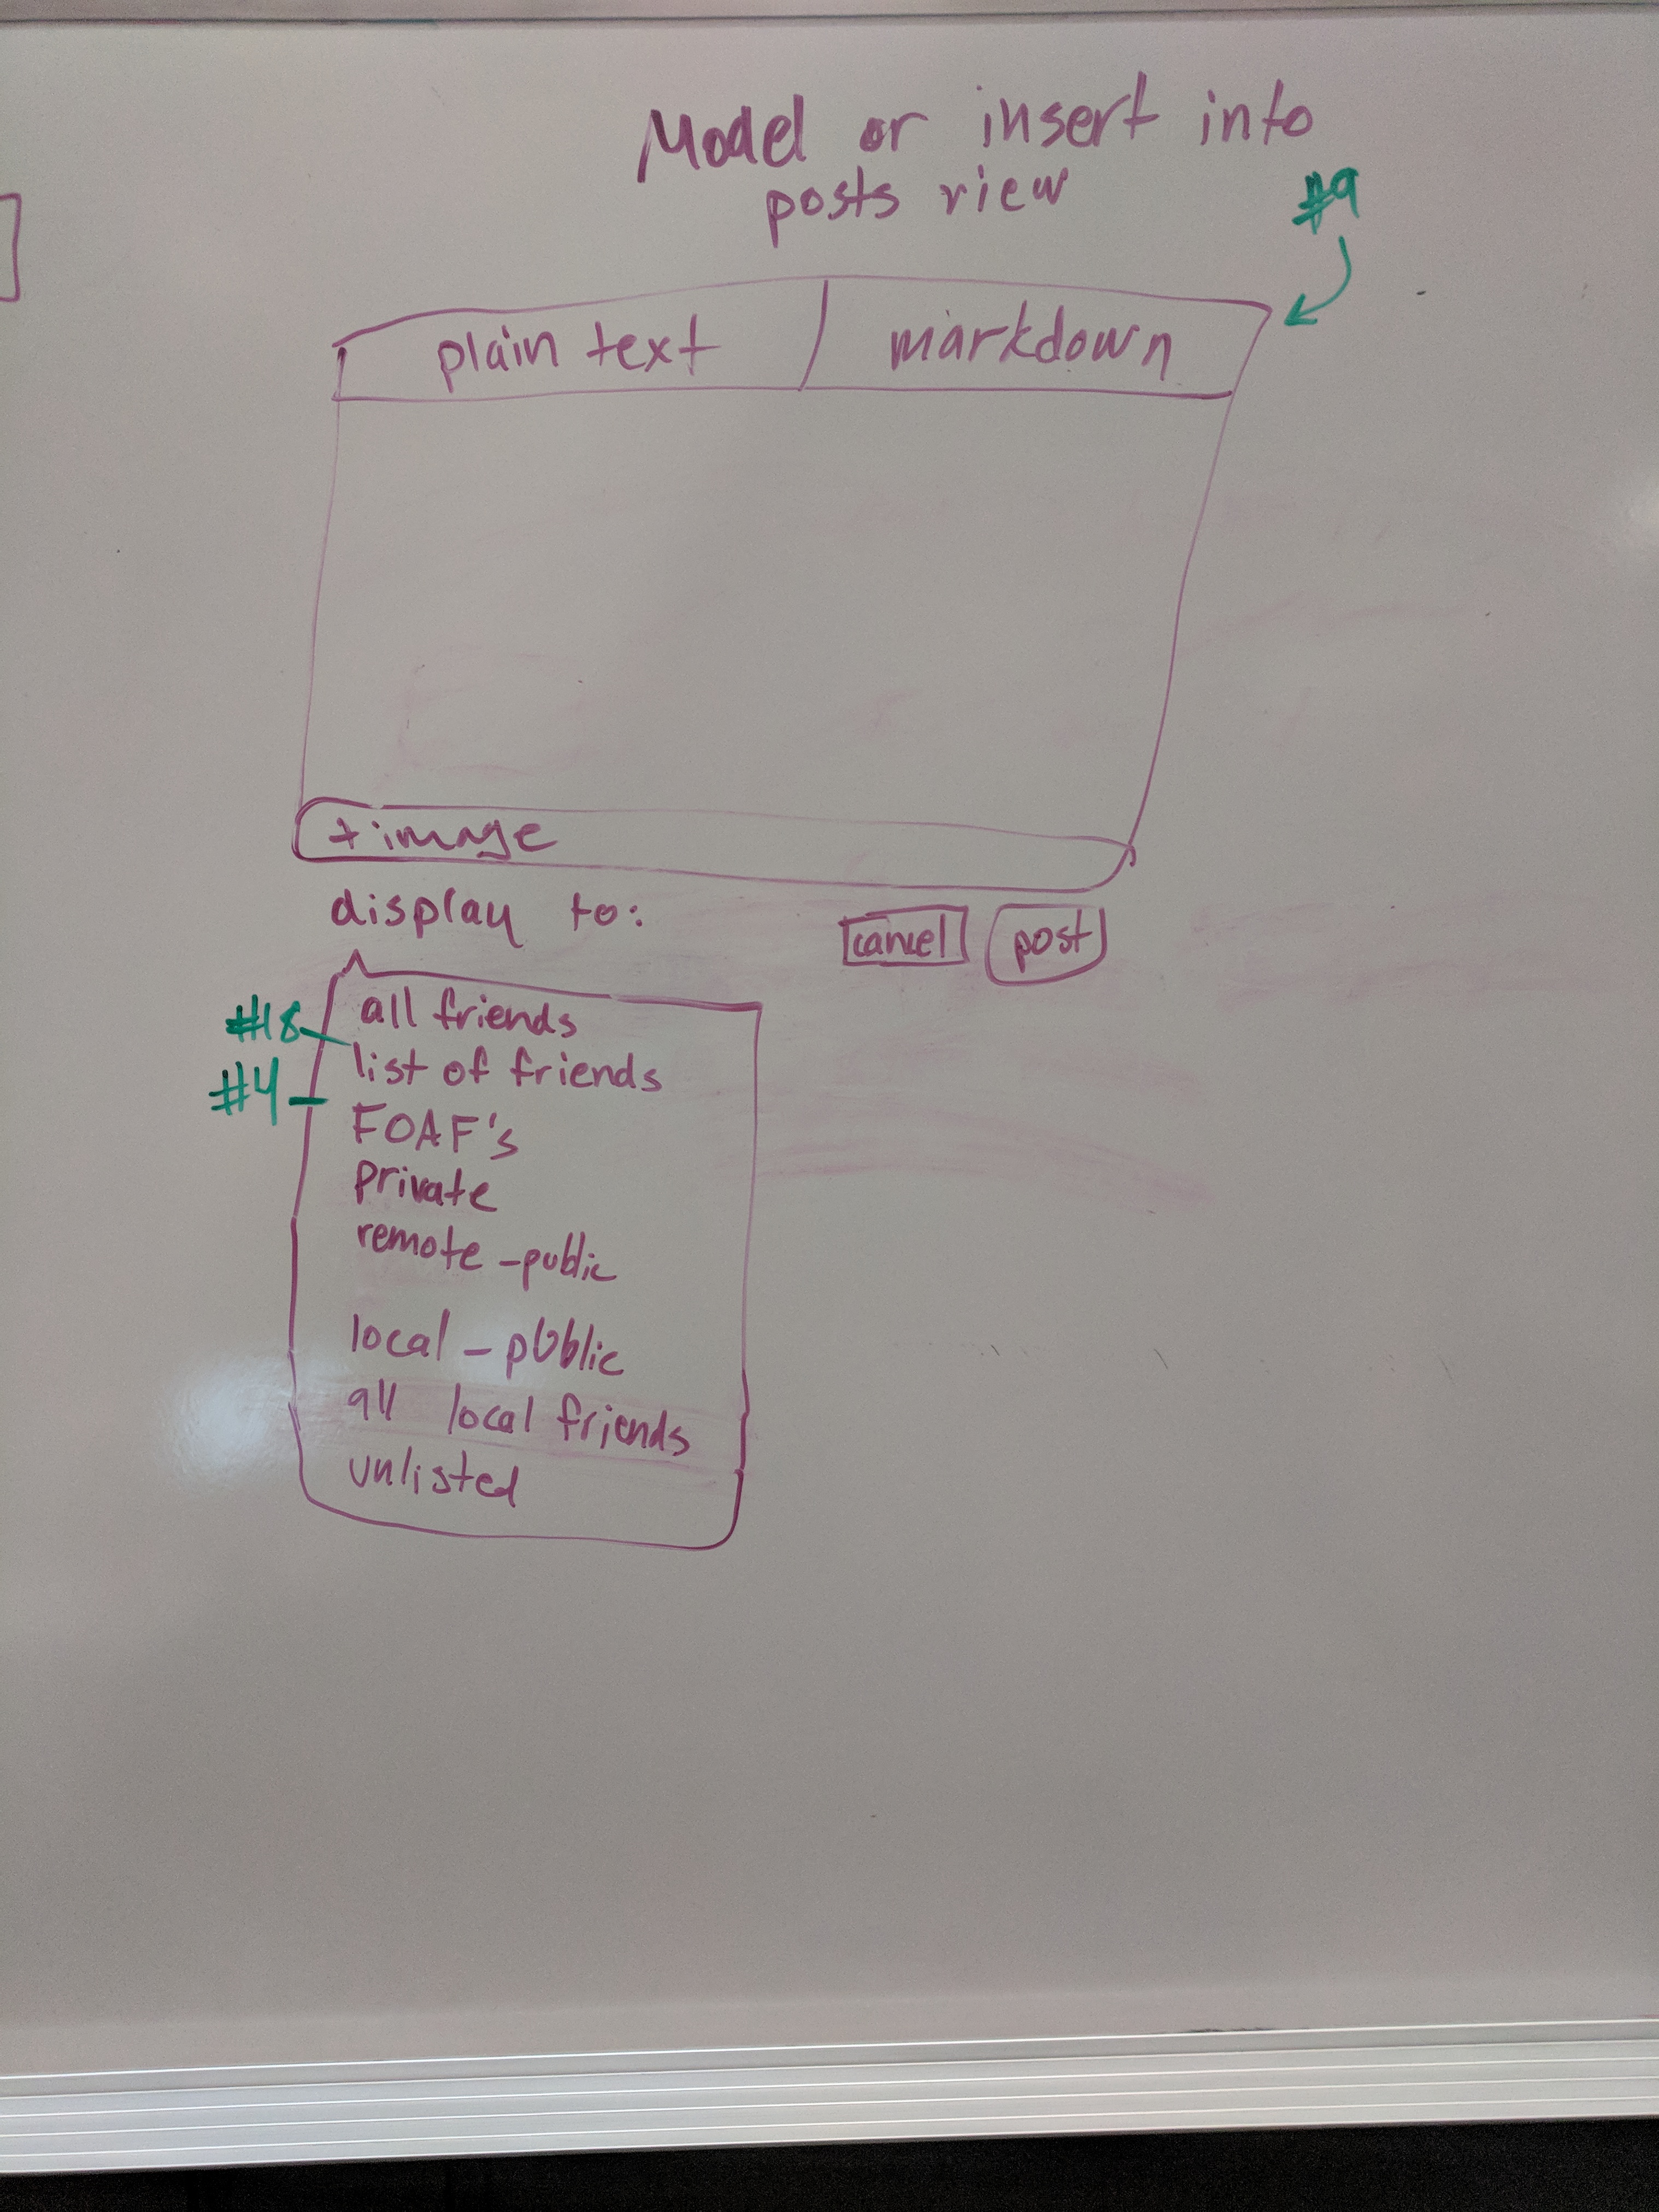 Model or insert into
posts view
#9
plain text markdown
+ image
display to:
cancel post
#18
#4
all friends
list of friends
FOAF's
Private
remote - public
local - public
all local friends
unlisted